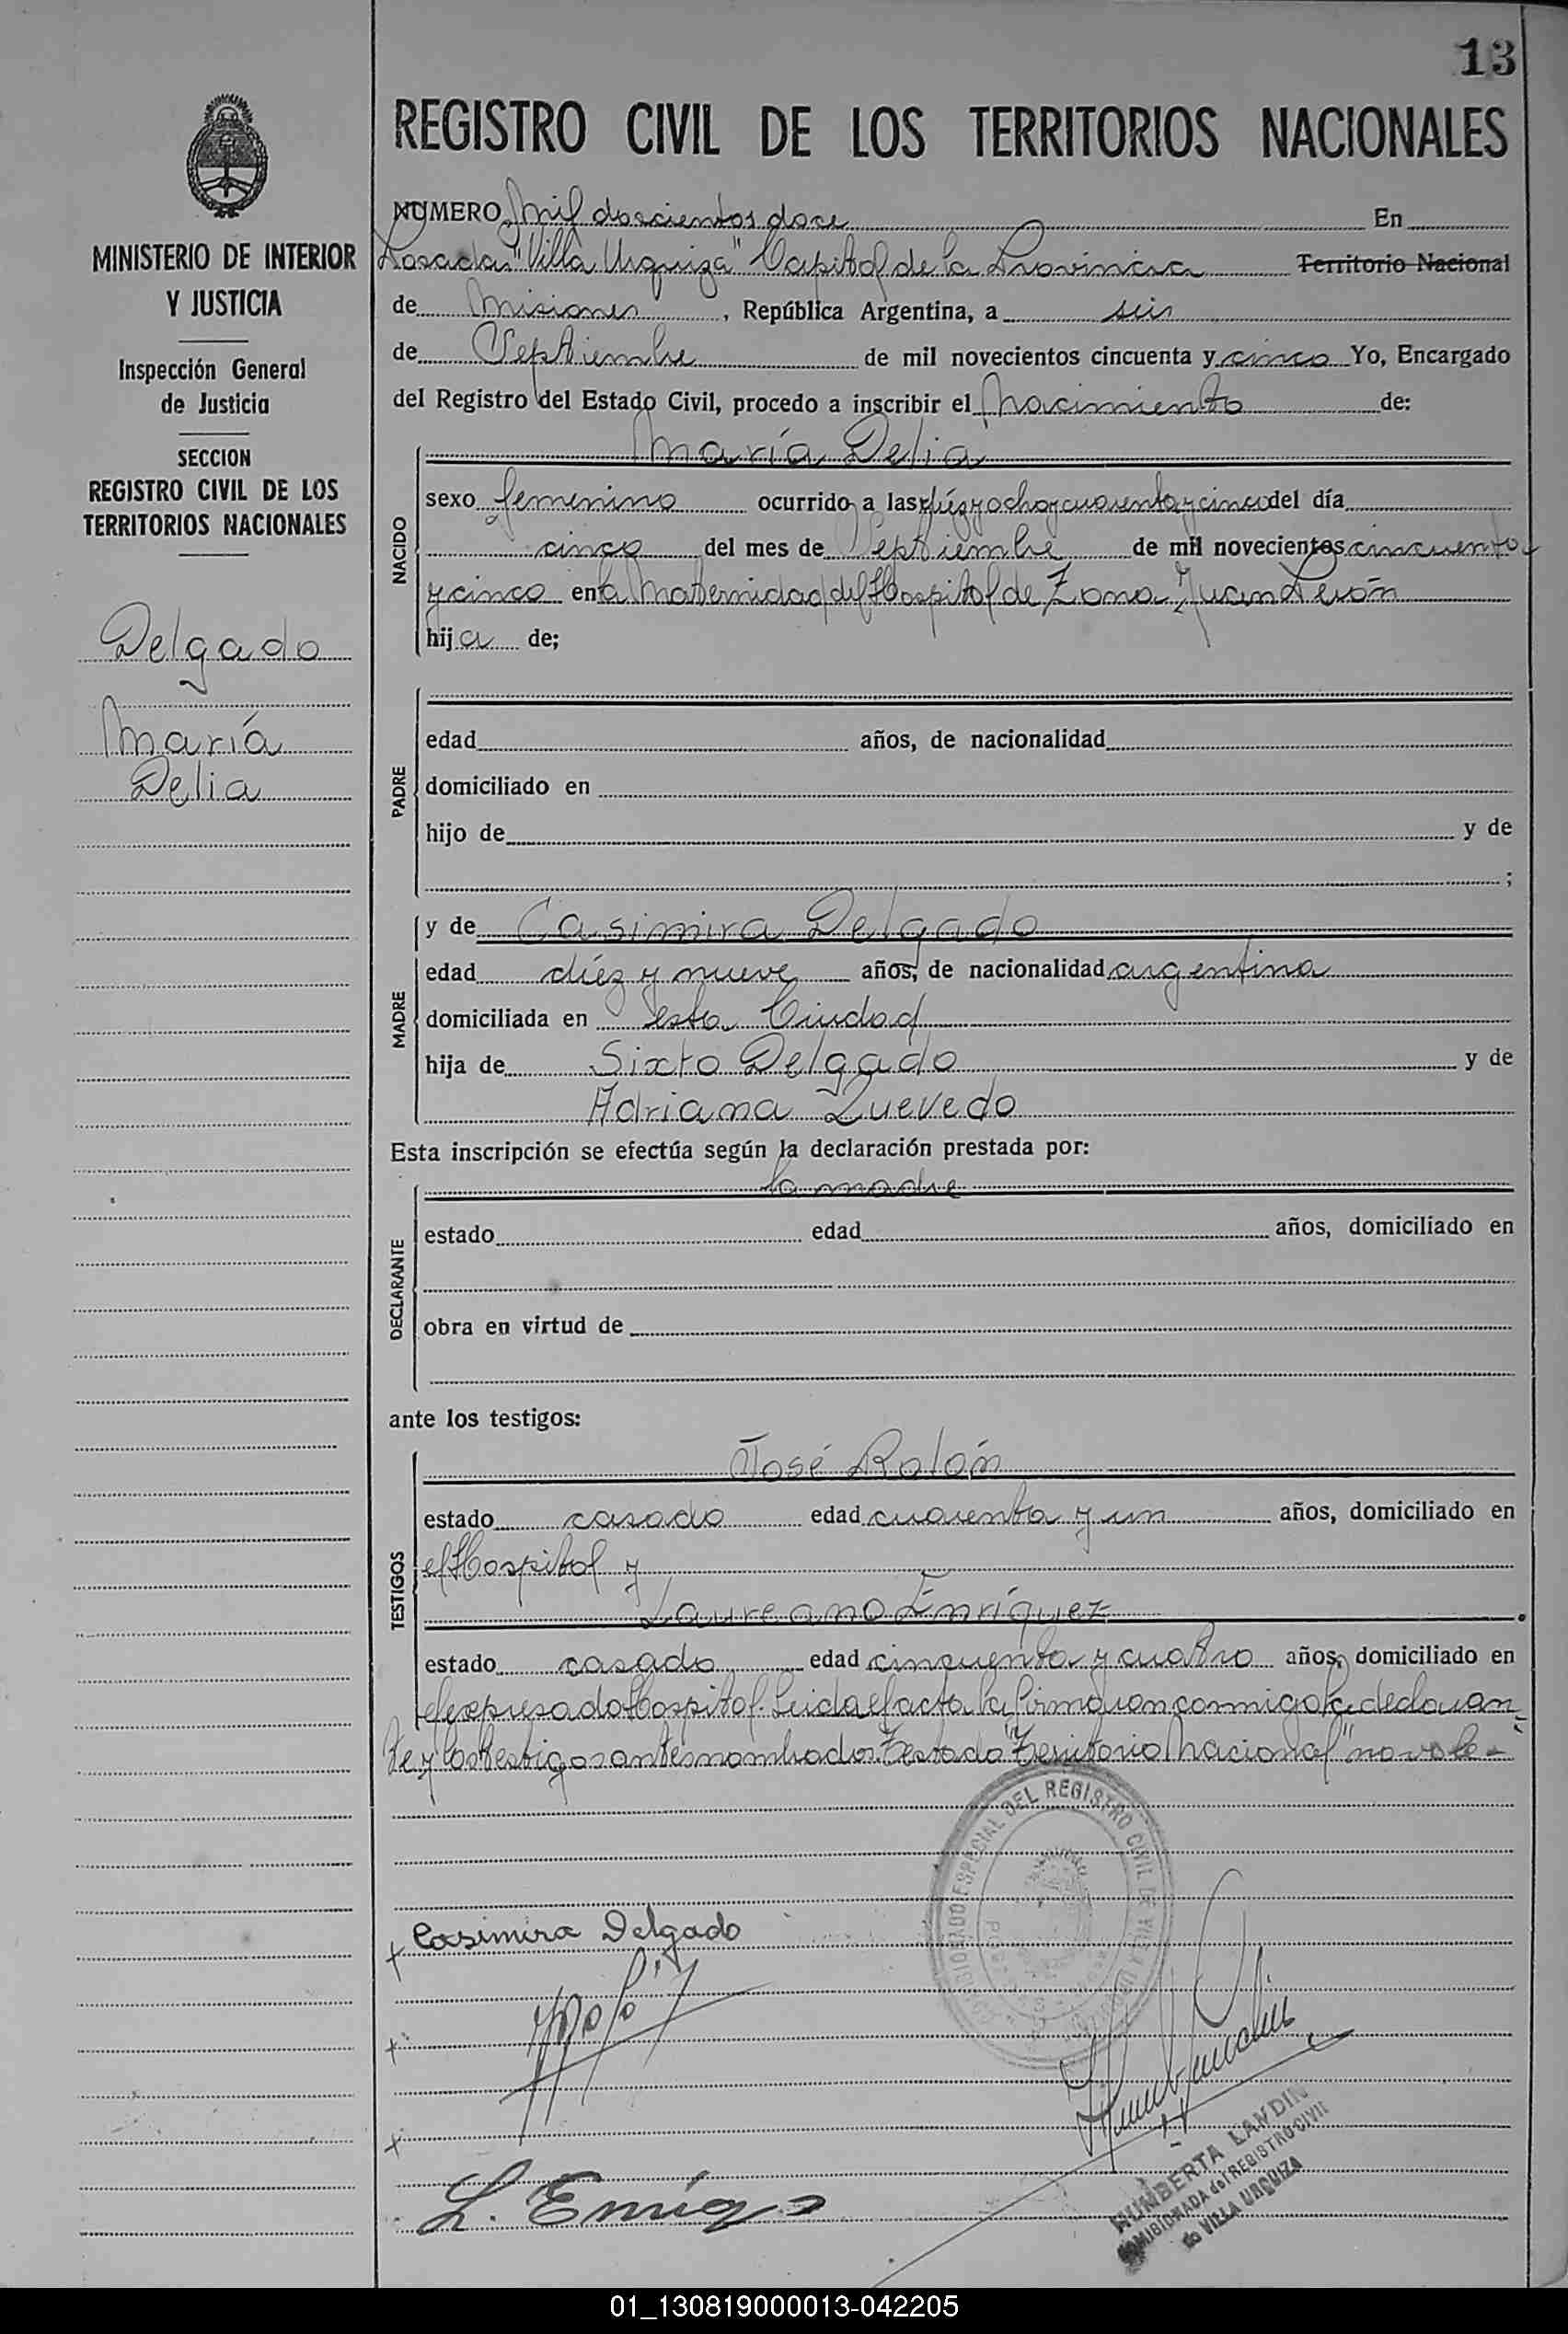 13
REGISTRO CIVIL DE LOS TERRITORIOS NACIONALES
MINISTERIO DE INTERIOR
Y JUSTICIA
Inspección General
de Justicia
SECCION
REGISTRO CIVIL DE LOS
TERRITORIOS NACIONALES
Delgado
María
Delia
NUMERO Mil doscientos doce En
Posadas "Villa Urquiza" Capital de la Provincia Territorio Nacional
de Misiones, República Argentina, a seis
de Septiembre de mil novecientos cincuenta y cinco Yo, Encargado
del Registro del Estado Civil, procedo a inscribir el Nacimiento de:
NACIDO
María Delia
sexo femenino ocurrido a las diéz y ocho y cuarenta y cinco del día
cinco del mes de Septiembre de mil novecientos cincuenta
y cinco en la Maternidad del Hospital de Zona Juan Perón
hija de;
PADRE
edad años, de nacionalidad
domiciliado en
hijo de y de
;
MADRE
y de Casimira Delgado
edad diéz y nueve años, de nacionalidad argentina
domiciliada en esta Ciudad
hija de Sixto Delgado y de
Adriana Quevedo
Esta inscripción se efectúa según la declaración prestada por:
DECLARANTE
la madre
estado edad años, domiciliado en
obra en virtud de
ante los testigos:
TESTIGOS
José Rolón
estado casado edad cuarenta y un años, domiciliado en
el Hospital y
Laureano Enríquez.
estado casado edad cincuenta y cuatro años, domiciliado en
el expresado Hospital. Leida el acta la firmaron conmigo la declaran-
te y los testigos antes nombrados. Testado "Territorio Nacional" no vale-
DEL REGISTRO CIVIL DE VILLA URQUIZA
Casimira Delgado
L. Enriqz
HUMBERTA LANDIN
COMISIONADA del REGISTRO CIVIL
de VILLA URQUIZA
01_130819000013-042205